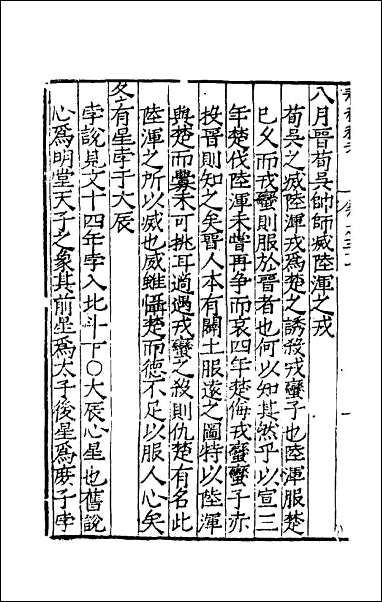 八月晉荀吳帥師滅陸渾之戎
荀吳之滅陸渾戎爲楚之誘殺戎蠻子也陸渾服楚
已久而戎蠻則服於晉者也何以知其然乎以宣三
年楚伐陸渾未嘗再爭而哀四年楚侮戎蠻蠻子赤
投晉則知之矣晉人本有闢土服遠之圖特以陸渾
與楚而釁未可挑耳適遇戎蠻之殺則仇楚有名此
陸渾之所以滅也威雖懾楚而德不足以服人心矣
冬有星孛于大辰
孛說見文十四年孛入北斗下○大辰心星也舊說
心爲明堂天子之象其前星爲太子後星爲庶子孛